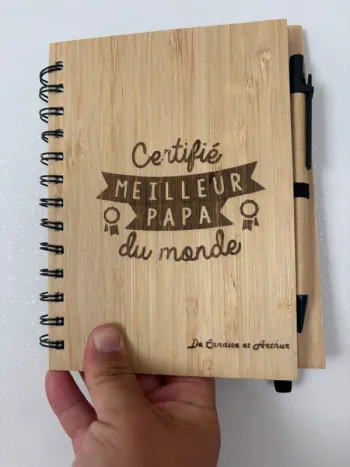 Certifié
MEILLEUR
PAPA
du monde
De Candice et Arthur